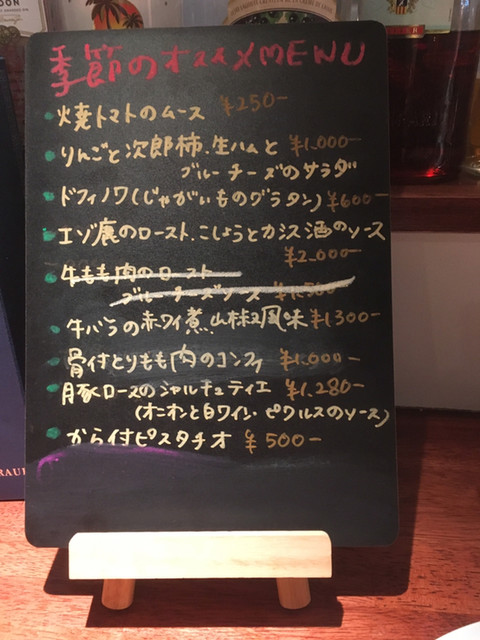 季節のオススメMENU
焼トマトのムース ¥250-
りんごと次郎柿、生ハムと ¥1,000-
ブルーチーズのサラダ
ドフィノワ(じゃがいものグラタン) ¥600-
エゾ鹿のロースト、こしょうとカシス酒のソース
¥2,000-
牛もも肉のロースト
ブルーチーズソース ¥1,500-
牛バラの赤ワイン煮、山椒風味 ¥1,300-
骨付とりもも肉のコンフィ ¥1,000-
豚ロースのシャルキュティエ ¥1,280-
(オニオンと白ワイン・ピクルスのソース)
から付ピスタチオ ¥500-